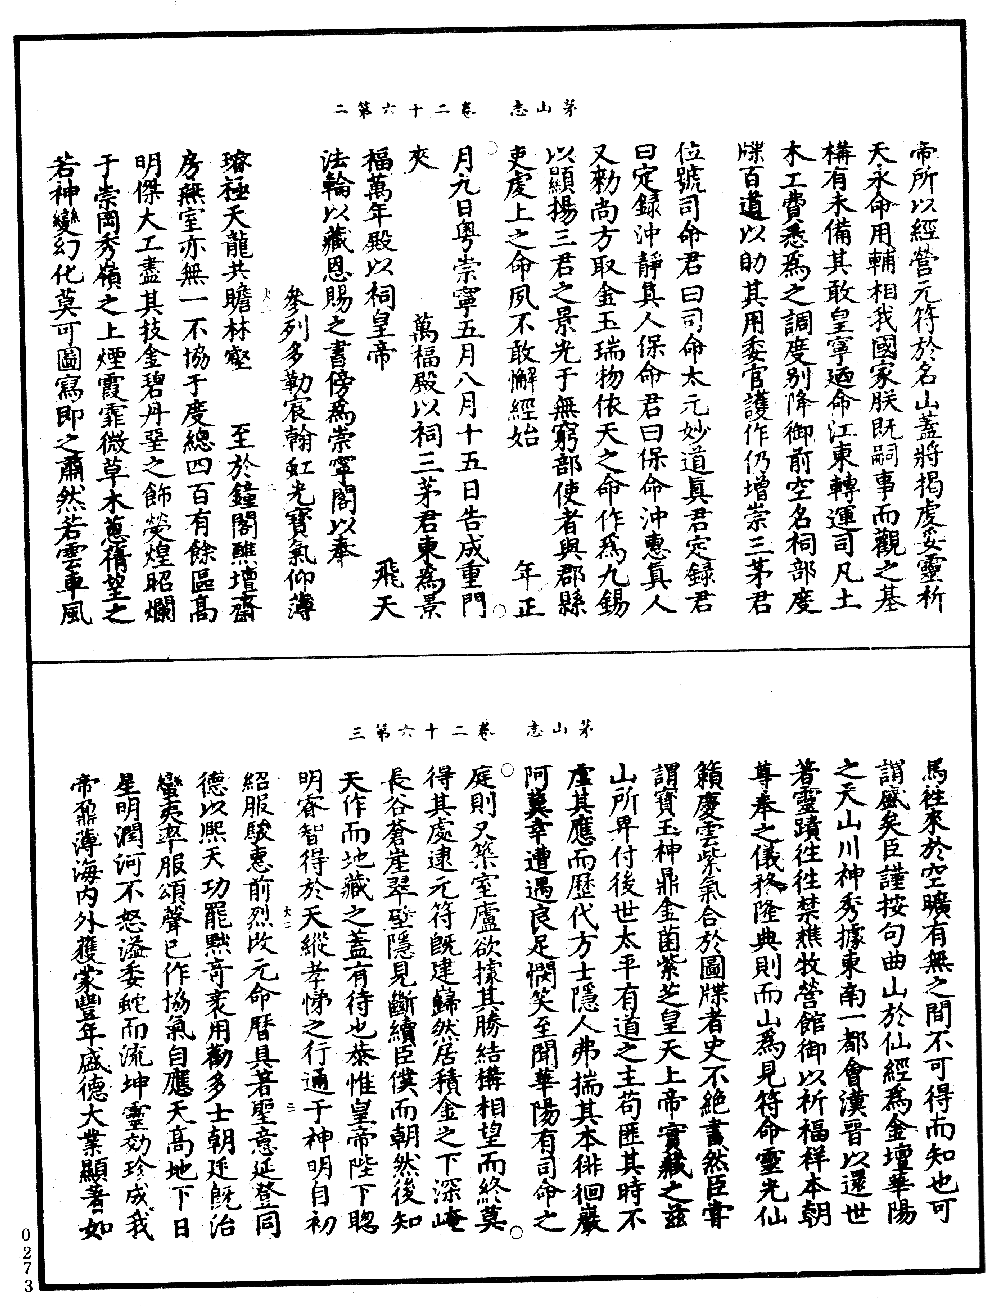 茅山志　卷二十六第二
帝所以經營元符於名山蓋將揭虔妥靈祈
天永命用輔相我國家朕既嗣事而觀之基
構有未備其敢皇寧迺命江東轉運司凡土
木工費悉爲之調度別降御前空名祠部度
牒百道以助其用委官護作仍增崇三茅君
位號司命君曰司命太元妙道真君定錄君
曰定錄沖靜真人保命君曰保命沖惠真人
又勑尚方取金玉瑞物依天之命作爲九錫
以顯揚三君之景光于無窮部使者與郡縣
吏虔上之命夙不敢懈經始　　　　年正
月九日粵崇寧五月八月十五日告成重門
夾　　　　萬福殿以祠三茅君東爲景
福萬年殿以祠皇帝　　　　飛天
法輪以藏恩賜之書傍爲崇寧閣以奉
　　　參列多勒宸翰虹光寶氣仰薄
璿極天龍共瞻林壑　至於鐘閣醮壇齋
房無室亦無一不協于度總四百有餘區高
明傑大工盡其技金碧丹堊之飾熒煌昭爛
于崇岡秀嶺之上煙霞霏微草木蔥蒨望之
若神變幻化莫可圖寫即之肅然若雲車風
茅山志　卷二十六第三
馬往來於空曠有無之間不可得而知也可
謂盛矣臣謹按句曲山於仙經爲金壇華陽
之天山川神秀據東南一都會漢晉以還世
著靈蹟往往禁樵牧營館御以祈福祥本朝
尊奉之儀務隆典則而山爲見符命靈光仙
籟慶雲紫氣合於圖牒者史不絕書然臣嘗
謂寶玉神鼎金菌紫芝皇天上帝實藏之茲
山所畀付後世太平有道之主苟匪其時不
虛其應而歷代方士隱人弗揣其本徘徊巖
阿冀幸遭遇良足憫笑至聞華陽有司命之
庭則又築室廬欲據其勝結構相望而終莫
得其處逮元符既建巋然居積金之下深崦
長谷蒼崖翠壁隱見斷續臣僕而朝然後知
天作而地藏之蓋有待也恭惟皇帝陛下聰
明睿智得於天縱孝悌之行通于神明自初
紹服駿惠前烈改元命曆具著聖意延登同
德以熙天功罷黜奇衺用勸多士朝廷既治
蠻夷率服頌聲已作協氣自應天高地下日
星明潤河不怒溢委蛇而流坤靈効珍成我
帝鼐薄海內外獲蒙豐年盛德大業顯著如
0273